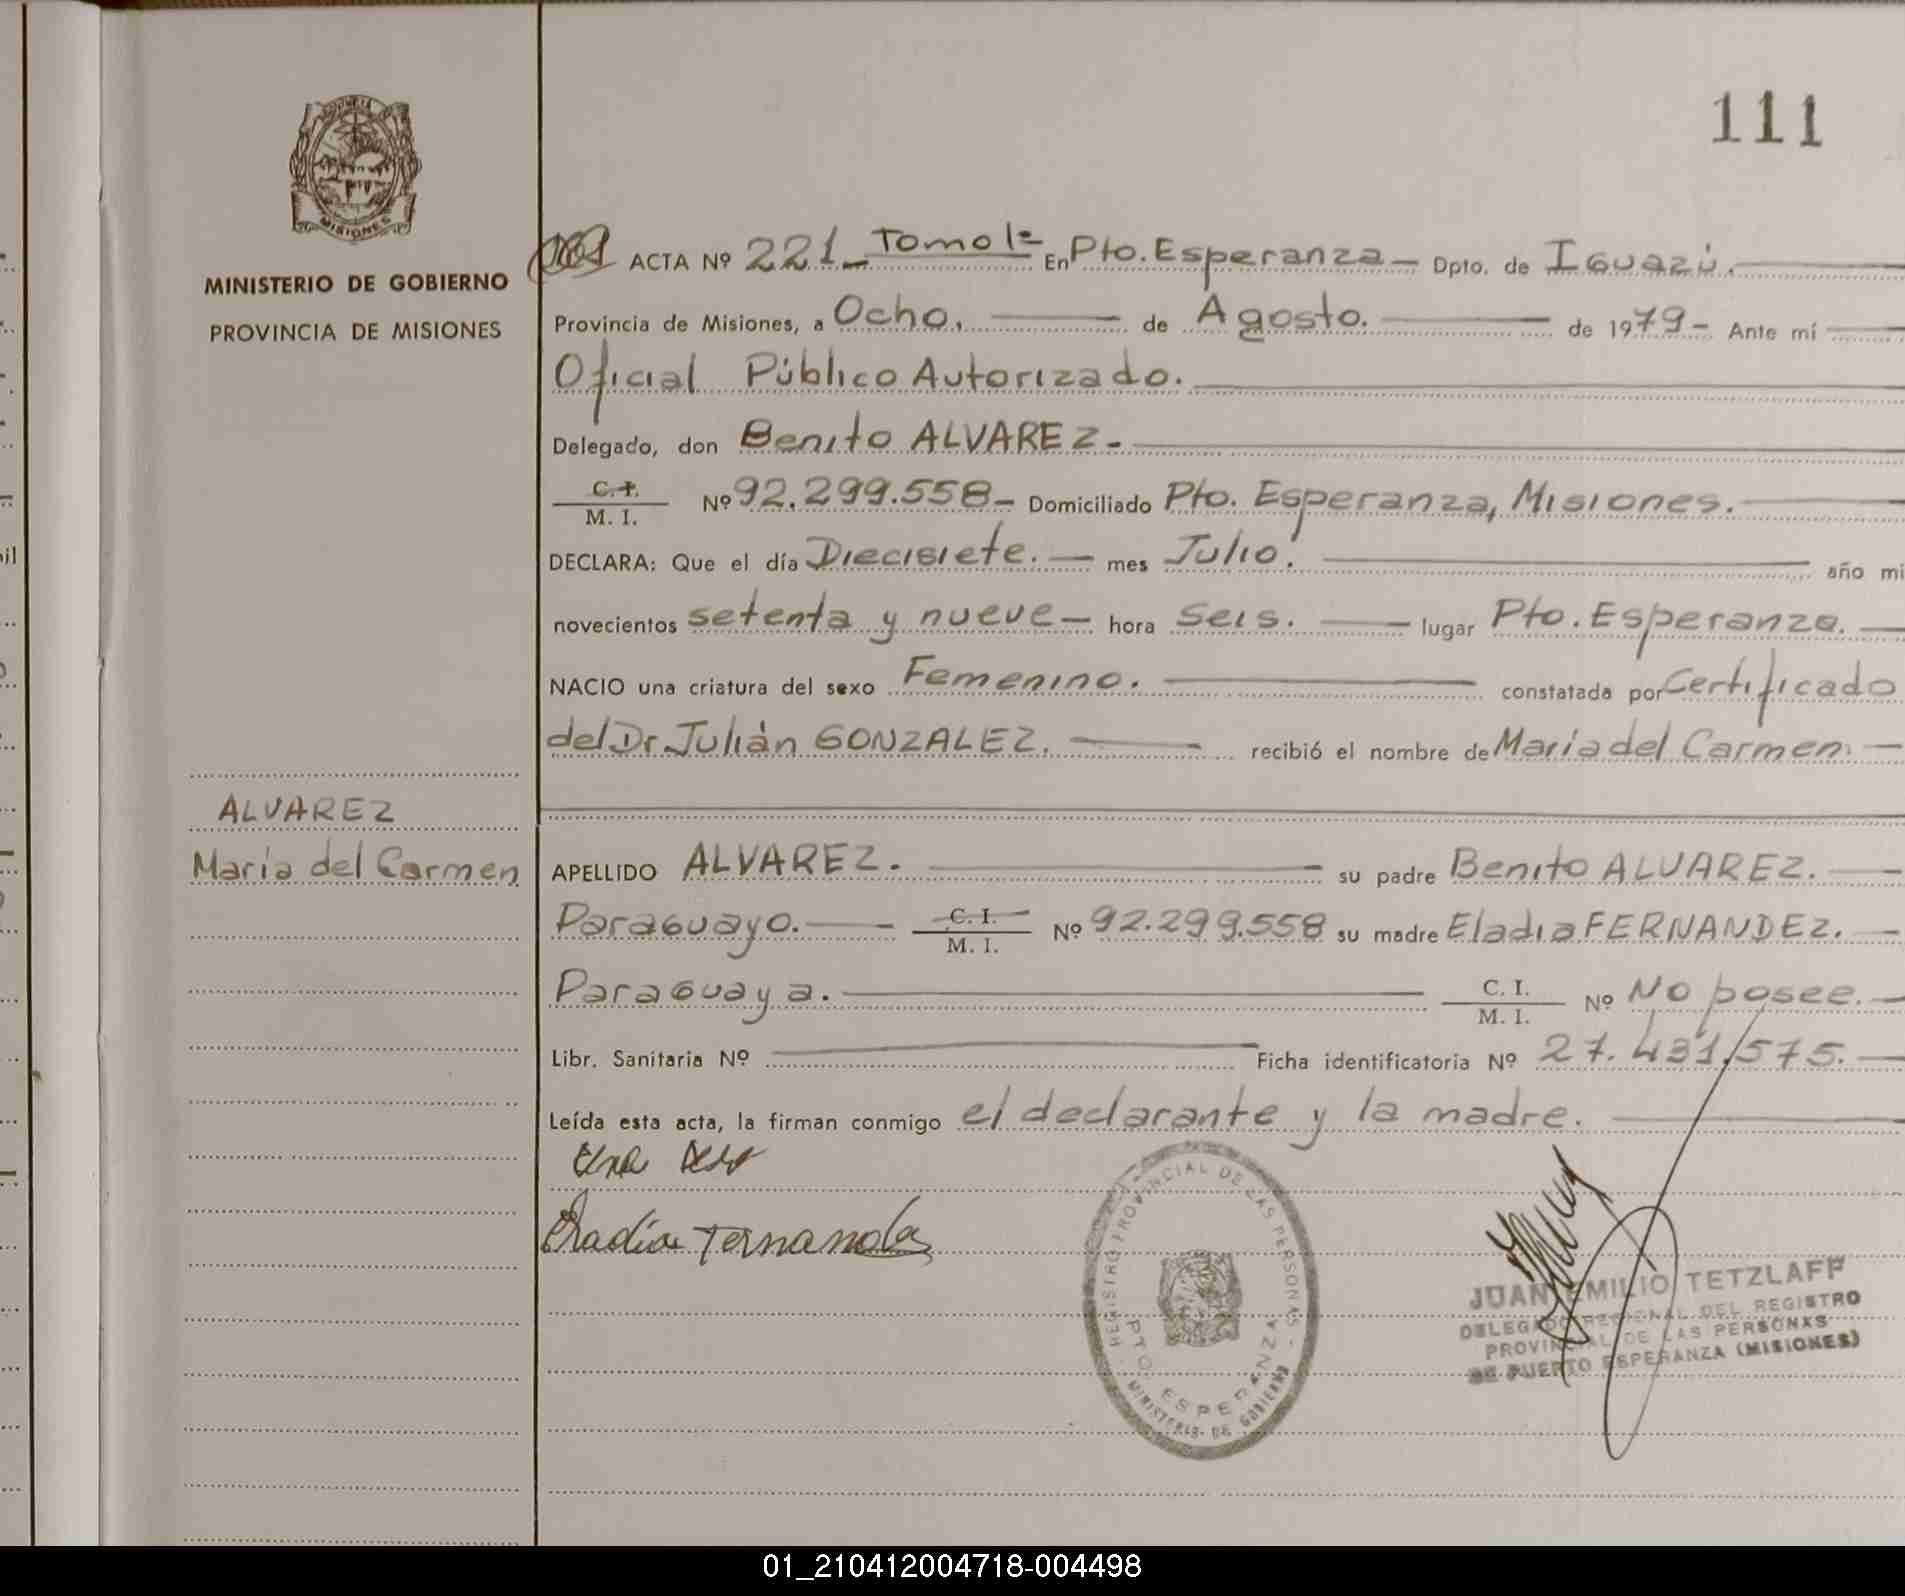 111
MISIONES
MINISTERIO DE GOBIERNO
PROVINCIA DE MISIONES
ACTA Nº 221 - Tomo 1º En Pto. Esperanza - Dpto. de Iguazú.
Provincia de Misiones, a Ocho. de Agosto. de 1979 - Ante mí
Oficial Público Autorizado.
Delegado, don Benito ALVAREZ -
C. I.
M. I. Nº 92.299.558 - Domiciliado Pto. Esperanza, Misiones.
DECLARA: Que el día Diecisiete. mes Julio. año mi
novecientos setenta y nueve - hora seis. lugar Pto. Esperanza.
NACIO una criatura del sexo Femenino. constatada por Certificado
del Dr. Julián GONZALEZ. recibió el nombre de María del Carmen.
ALVAREZ
María del Carmen
APELLIDO ALVAREZ. su padre Benito ALVAREZ.
Paraguayo. C. I.
M. I. Nº 92.299.558 su madre Eladia FERNANDEZ.
Paraguaya. C. I.
M. I. Nº No posee.
Libr. Sanitaria Nº Ficha identificatoria Nº 27.431.575.
Leída esta acta, la firman conmigo el declarante y la madre.
REGISTRO PROVINCIAL DE LAS PERSONAS
PTO. ESPERANZA
MINISTERIO DE GOBIERNO
JUAN EMILIO TETZLAFF
DELEGADO REGIONAL DEL REGISTRO
PROVINCIAL DE LAS PERSONAS
DE PUERTO ESPERANZA (MISIONES)
01_210412004718-004498